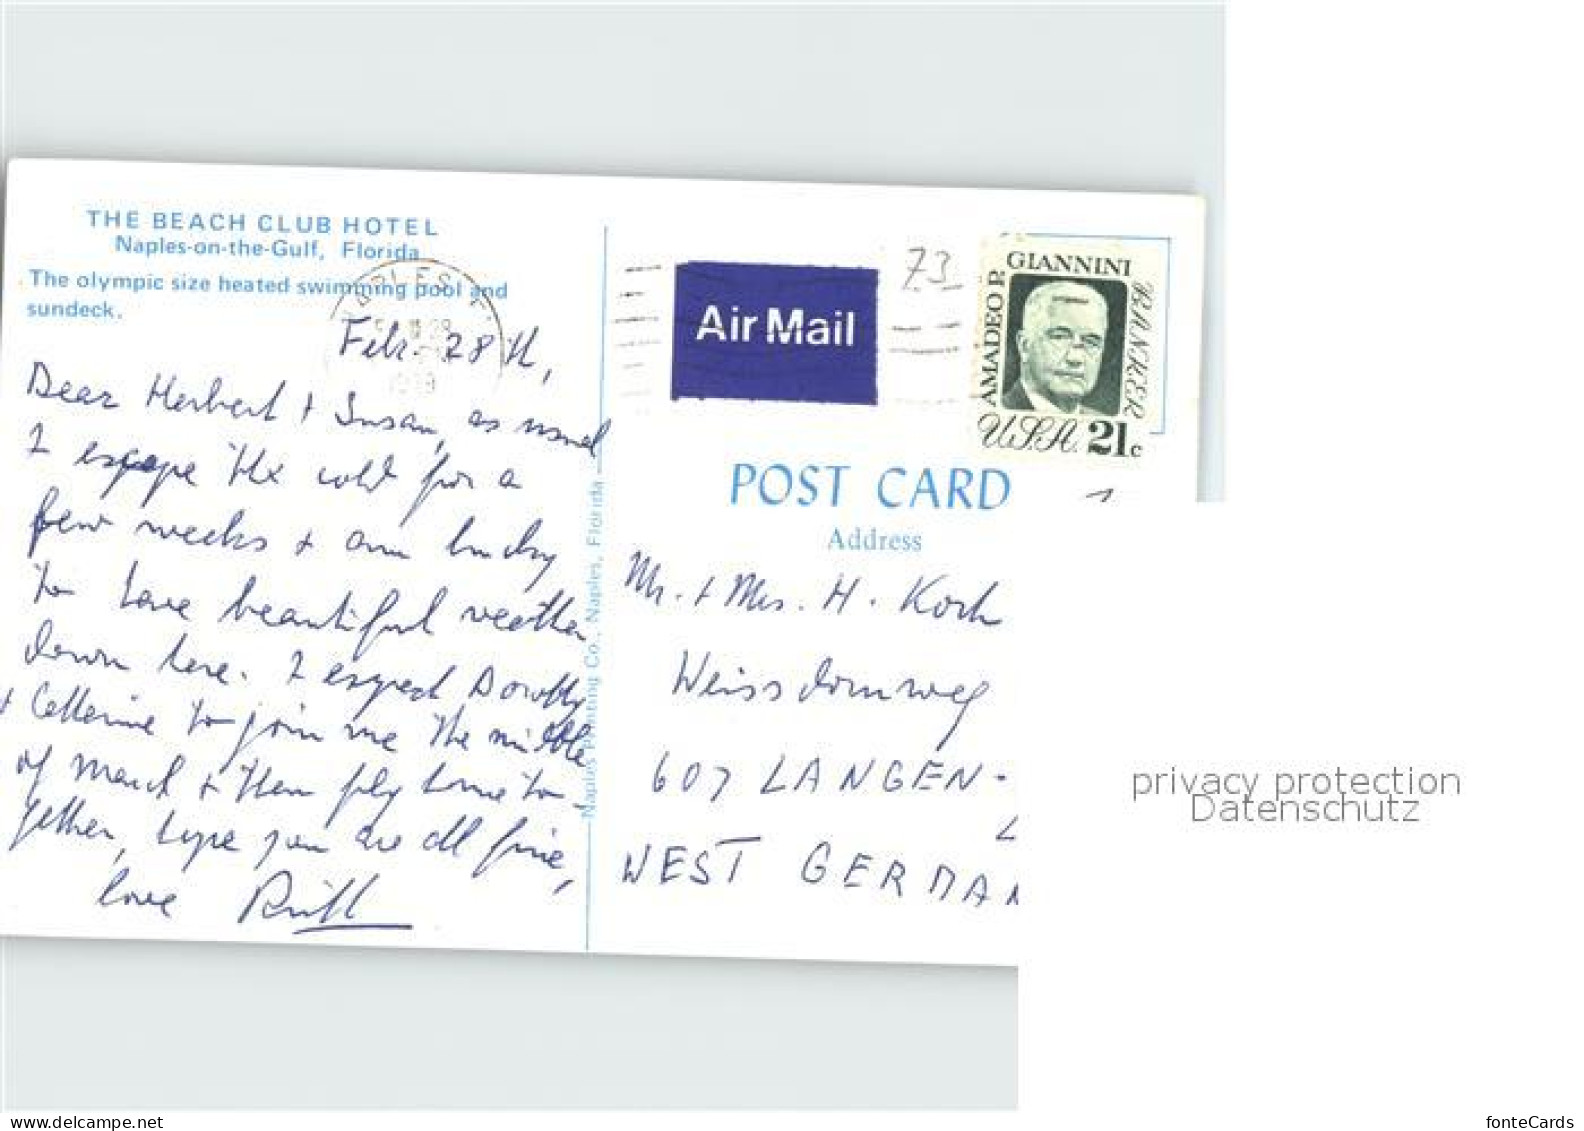 THE BEACH CLUB HOTEL
Naples-on-the-Gulf, Florida
The olympic size heated swimming pool and
sundeck.
Feb. 28th,
Dear Herbert + Susan, as usual
I escape the cold for a
few weeks + am lucky
to have beautiful weather
down here. I expect Dorothy
+ Catherine to join me the middle
of March + then fly home to-
gether, hope you are all fine,
love Ruth
Naples Printing Co., Naples, Florida
Air Mail
73
AMADEO P. GIANNINI BANKER
U.S.A. 21c
POST CARD
Address
Mr. + Mrs. H. Koch
Weissdornweg
607 LANGEN-
WEST GERMAN
privacy protection
Datenschutz
fonteCards